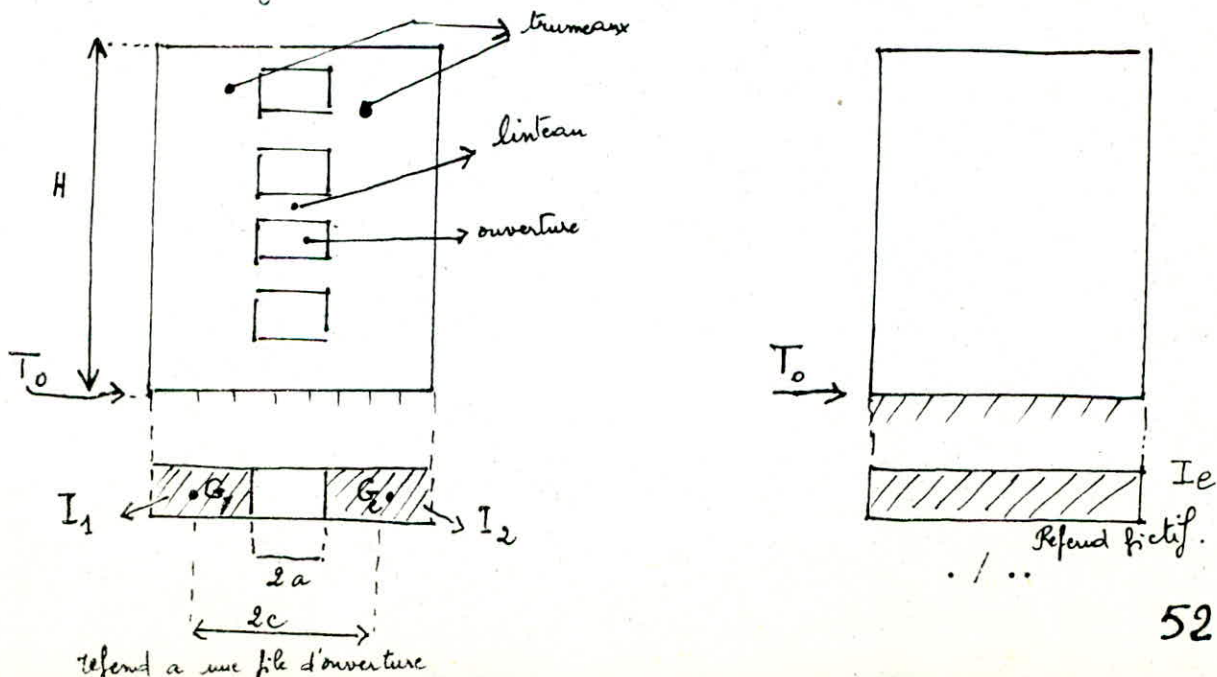 trumeaux
H
linteau
ouverture
T₀
T₀
I₁
G₁
G₂
I₂
Ie
2a
2c
refend a une file d'ouverture
Refend fictif.
. / ..
52